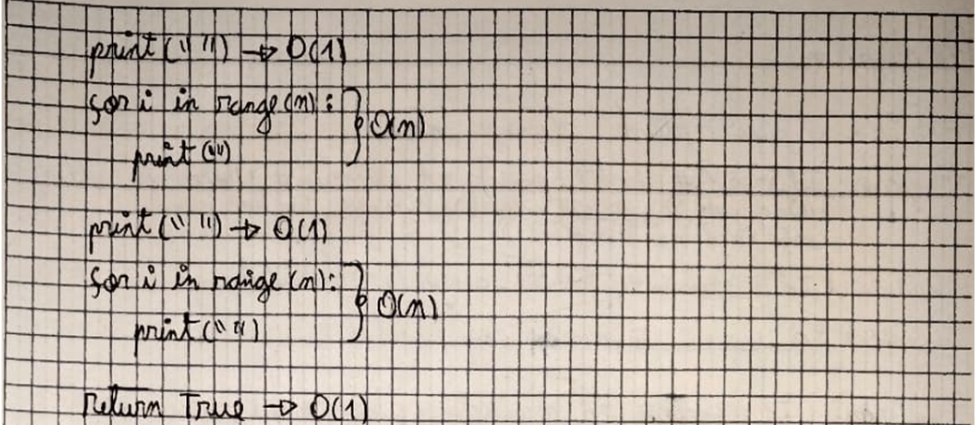 print(" ") → O(1)
for i in range(n): } O(n)
print("")
print(" ") → O(1)
for i in range(n): } O(n)
print(" ")
return True → O(1)